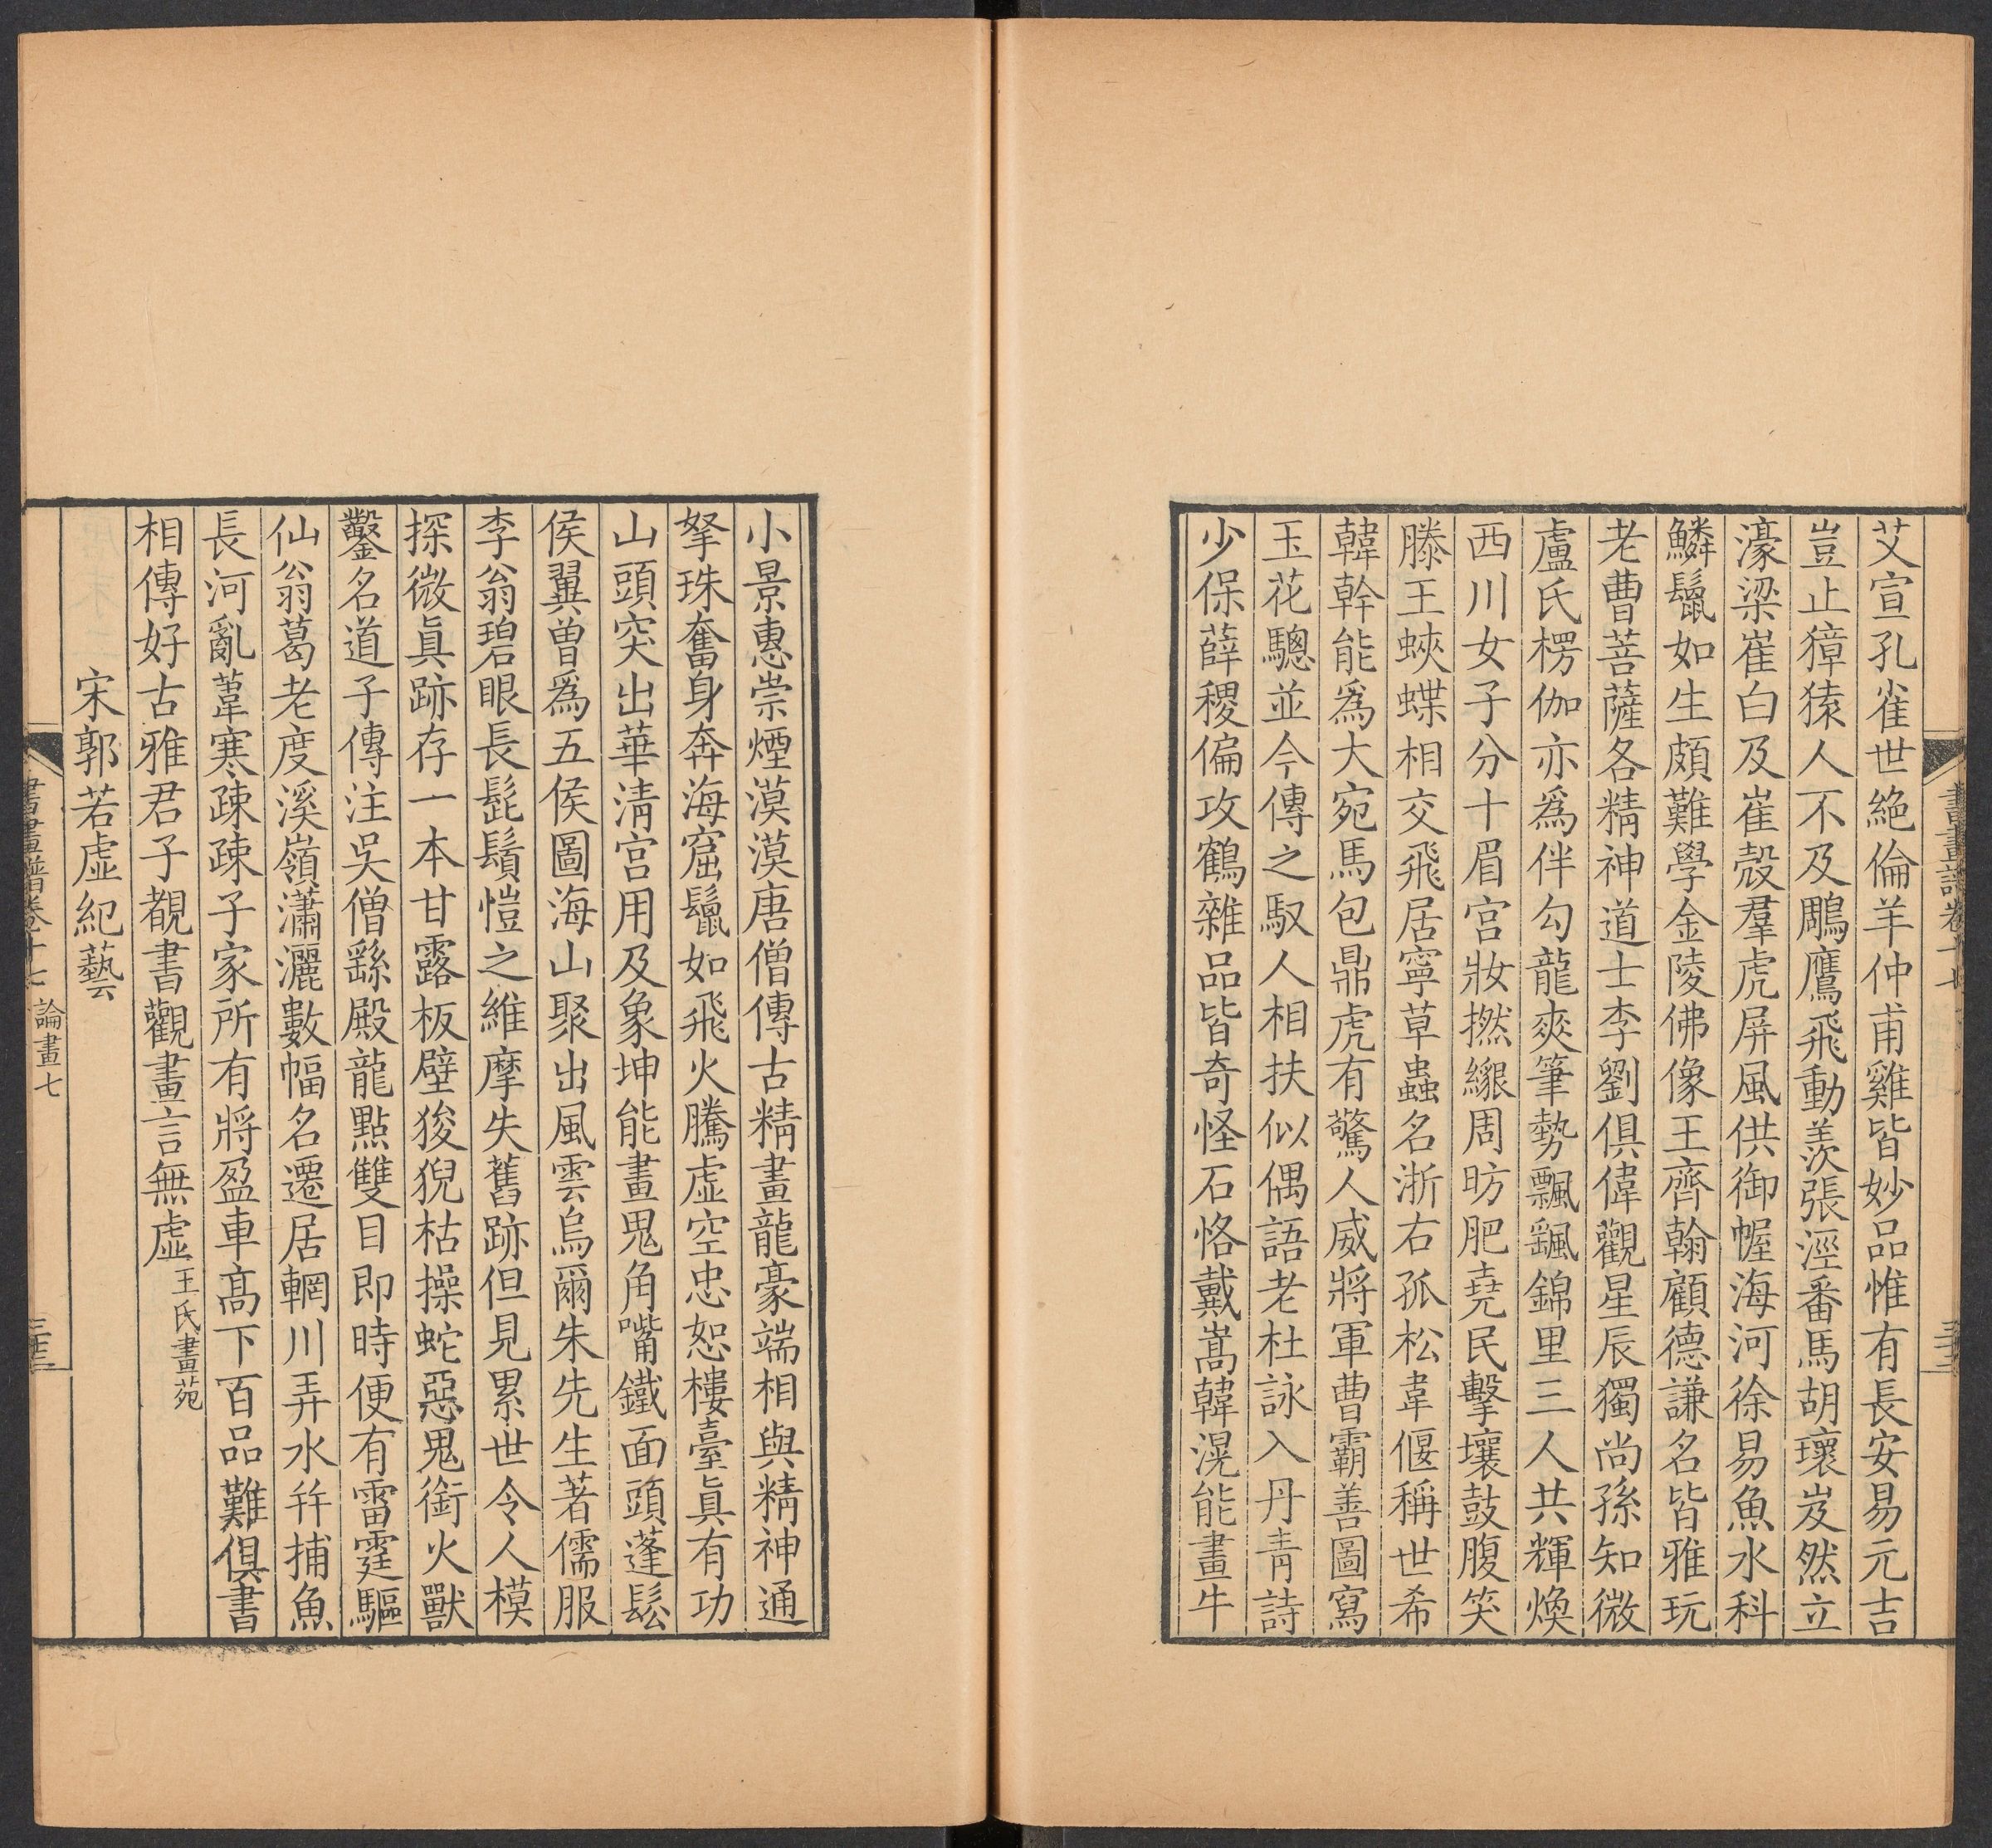 艾宣孔雀世絶倫羊仲甫雞皆妙品惟有長安易元吉
豈止獐猿人不及鵰鷹飛動羨張涇番馬胡瓌岌然立
濠梁崔白及崔殼羣虎屏風供御幄海河徐易魚水科
鱗鬛如生頗難學金陵佛像王齊翰顧德謙名皆雅玩
老曹菩薩各精神道士李劉俱偉觀星辰獨尚孫知微
盧氏楞伽亦爲伴勾龍爽筆勢飄颻錦里三人共輝煥
西川女子分十眉宫妝撚綠周昉肥堯民擊壤鼓腹笑
滕王蛺蝶相交飛居寧草蟲名浙右孤松韋偃稱世希
韓幹能爲大宛馬包鼎虎有驚人威將軍曹霸善圖寫
玉花驄並今傳之馭人相扶似偶語老杜詠入丹青詩
少保薛稷偏攻鶴雜品皆奇怪石恪戴嵩韓滉能畫牛
小景惠崇煙漠漠唐僧傳古精畫龍豪端相與精神通
拏珠奮身奔海窟鬛如飛火騰虚空忠恕樓臺眞有功
山頭突出華淸宫用及象坤能畫鬼角嘴鐵面頭蓬鬆
侯翼曾爲五侯圖海山聚出風雲烏爾朱先生著儒服
李翁碧眼長髭鬚愷之維摩失舊跡但見累世令人模
探微眞跡存一本甘露板壁狻猊枯操蛇惡鬼銜火獸
鑿名道子傳注吳僧繇殿龍點雙目即時便有雷霆驅
仙翁葛老度溪嶺瀟灑數幅名遷居輞川弄水并捕魚
長河亂葦寒疎疎子家所有將盈車高下百品難俱書
相傳好古雅君子覩書觀畫言無虛王氏畫苑
宋郭若虛紀藝
書畫譜卷十七 論畫七